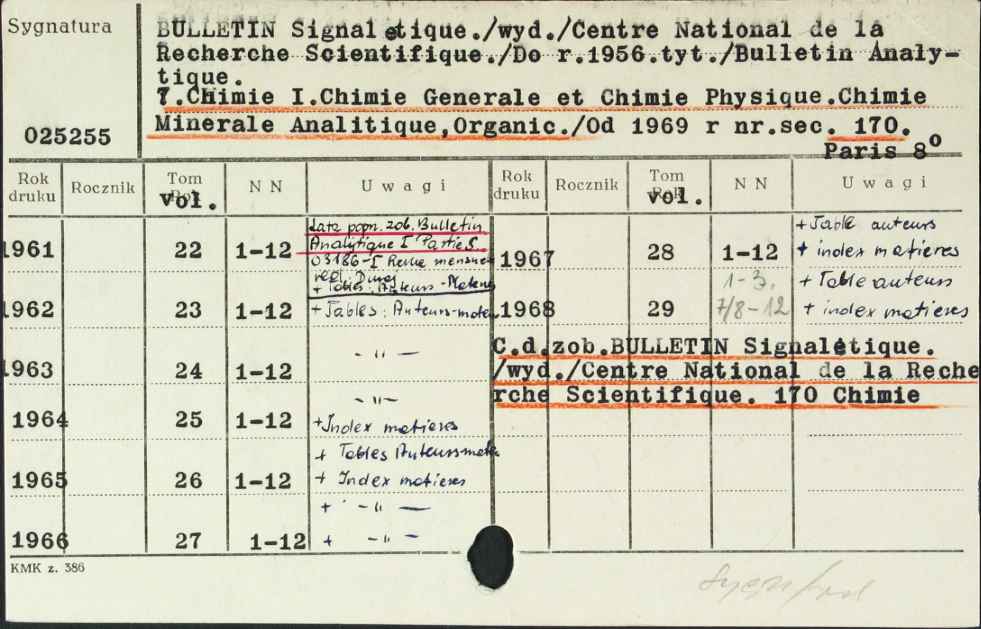 Sygnatura
025255
BULLETIN Signalétique./wyd./Centre National de la
Recherche Scientifique./Do r.1956.tyt./Bulletin Analy-
tique.
7.Chimie I.Chimie Generale et Chimie Physique.Chimie
Minerale Analitique,Organic./Od 1969 r nr.sec. 170.
Paris 8º
Rok druku Rocznik Tom Rok vol. N N Uwagi
1961 22 1-12 zob. Bulletin
Analytique I Partie S.
03186-I Revue
+ Tables: Auteurs -
1962 23 1-12 + Tables: Auteurs-
1963 24 1-12 - " -
1964 25 1-12 - " -
+ Index matieres
1965 26 1-12 + Tables Auteurs
+ Index matieres
1966 27 1-12 + - " -
+ - " -
Rok druku Rocznik Tom Rok vol. N N Uwagi
1967 28 1-12 + Table auteurs
+ index matieres
1968 29 1-3. + Table auteurs
7/8-12 + index matieres
C.d.zob.BULLETIN Signalétique.
/wyd./Centre National de la Reche
rche Scientifique. 170 Chimie
KMK z. 386